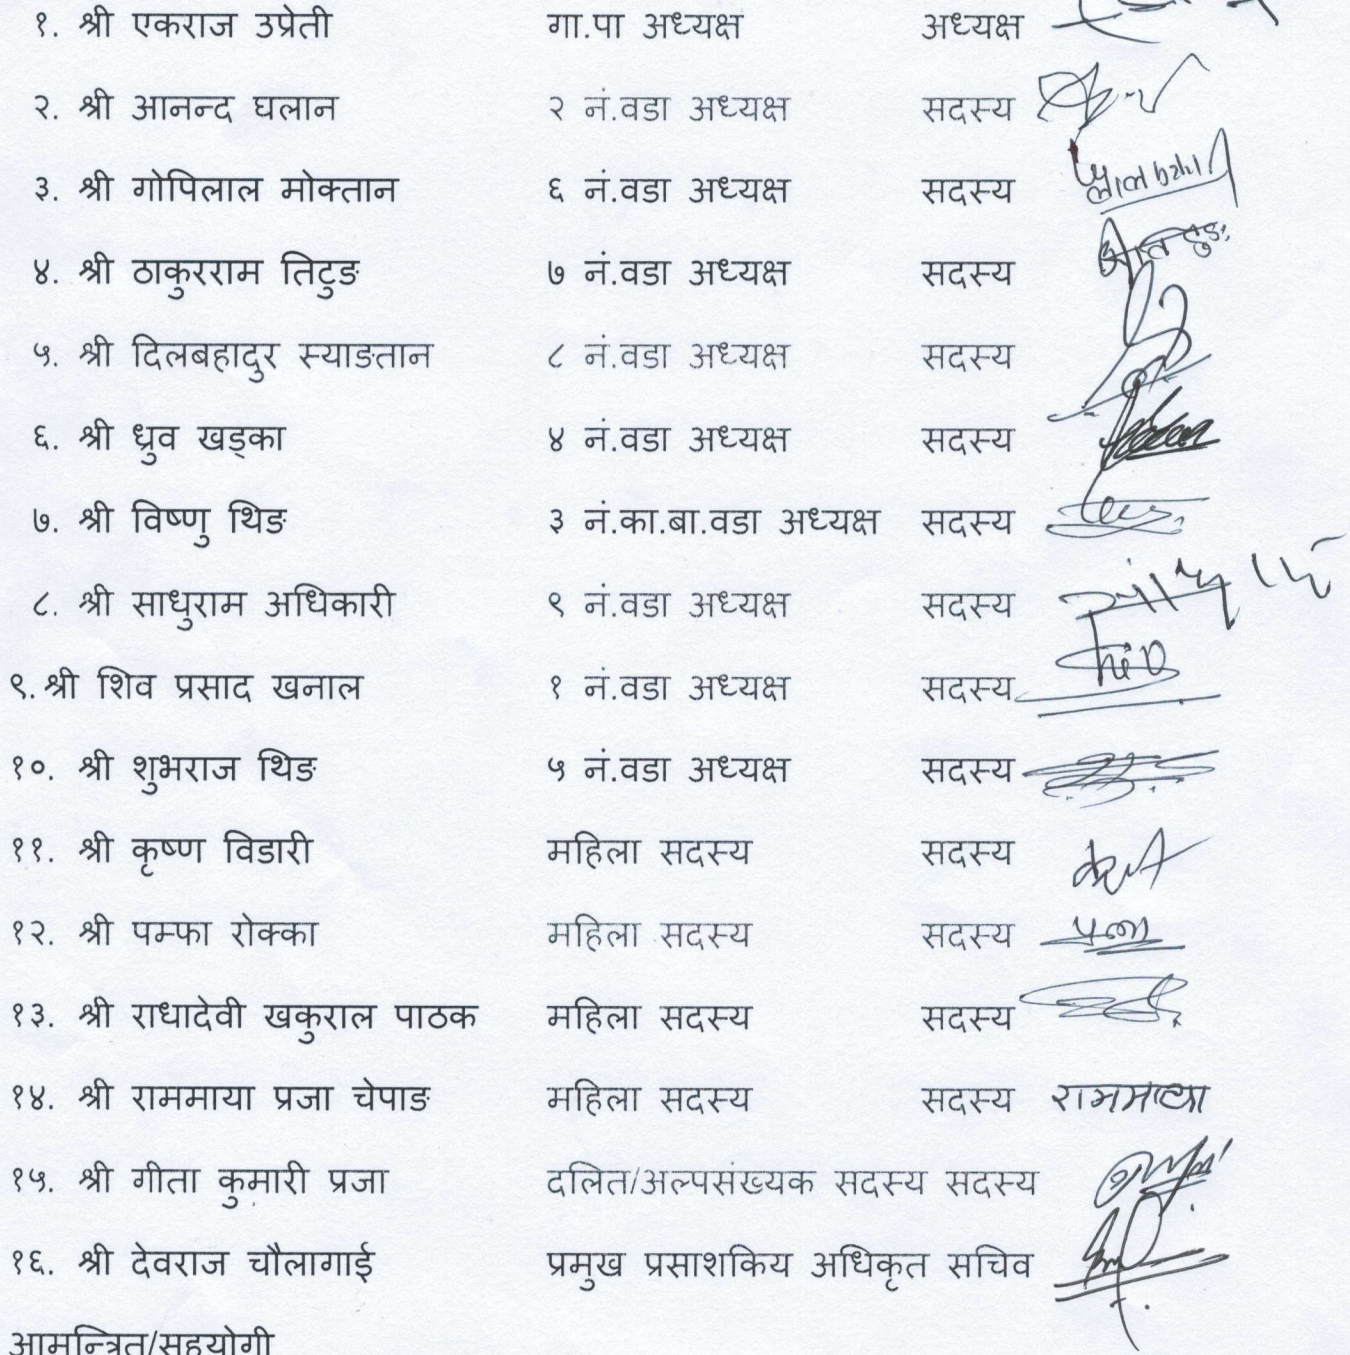 १. श्री एकराज उप्रेती गा.पा अध्यक्ष अध्यक्ष
२. श्री आनन्द घलान २ नं.वडा अध्यक्ष सदस्य
३. श्री गोपिलाल मोक्तान ६ नं.वडा अध्यक्ष सदस्य
४. श्री ठाकुरराम तिटुङ ७ नं.वडा अध्यक्ष सदस्य
५. श्री दिलबहादुर स्याङतान ८ नं.वडा अध्यक्ष सदस्य
६. श्री ध्रुव खड्का ४ नं.वडा अध्यक्ष सदस्य
७. श्री विष्णु थिङ ३ नं.का.बा.वडा अध्यक्ष सदस्य
८. श्री साधुराम अधिकारी ९ नं.वडा अध्यक्ष सदस्य
९. श्री शिव प्रसाद खनाल १ नं.वडा अध्यक्ष सदस्य
१०. श्री शुभराज थिङ ५ नं.वडा अध्यक्ष सदस्य
११. श्री कृष्ण विडारी महिला सदस्य सदस्य
१२. श्री पम्फा रोक्का महिला सदस्य सदस्य
१३. श्री राधादेवी खकुराल पाठक महिला सदस्य सदस्य
१४. श्री राममाया प्रजा चेपाङ महिला सदस्य सदस्य राममाया
१५. श्री गीता कुमारी प्रजा दलित/अल्पसंख्यक सदस्य सदस्य
१६. श्री देवराज चौलागाई प्रमुख प्रसाशकिय अधिकृत सचिव
आमन्त्रित/सहयोगी